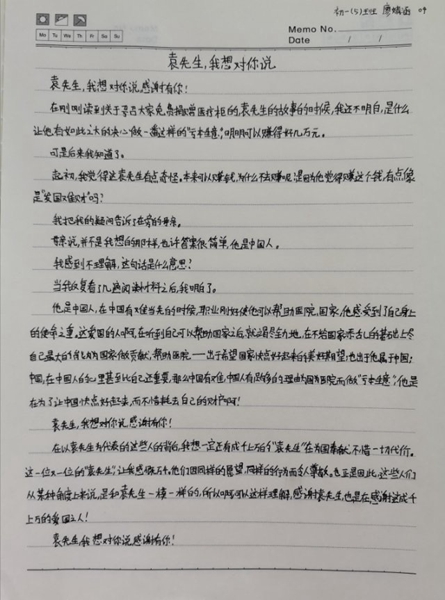 初一(5)班
Memo No.
Mo Tu We Th Fr Sa Su
Date / /
袁先生,我想对你说
袁先生,我想对你说,感谢有你!
在刚刚读到关于 大家免费捐赠医疗柜的袁先生的故事的时候,我还不明白,是什么
让他有如此之大的决心做一番这样的“亏本生意”,明明可以赚得好几万元。
可是后来我知道了。
起初,我觉得这袁先生有点奇怪。本来可以赚钱,为什么不去赚呢?是因为他觉得赚这个钱,有点像
是“发国难财”吗?
我把我的疑问告诉了在旁的母亲。
母亲说,并不是我想的那样,也许答案很简单,他是中国人。
我感到不理解,这句话是什么意思?
当我反复看了几遍阅读材料之后,我明白了。
他是中国人,在中国有难当先的时候,职业刚好使他可以帮助医院,国家,他感受到了自己身上
的使命之重,这爱国的人啊,在听到自己可以帮助国家之后,就义无反顾尽全力地,在不给国家添乱的基础上尽
自己最大的 为国家做贡献,帮助医院——出于希望国家快点好起来的美好期望;也出于他属于中国;
中国,在中国人的心里甚至比自己还重要,那么中国有难,中国人有 的理由 国为医院而做“亏本生意”,他是
在为了让中国快点好起来,而不惜耗去自己的财产啊!
袁先生,我想对你说,感谢有你!
在以袁先生为代表的这些人的背后,我想一定还有成千上万的“袁先生”在为国奉献,不惜一切代价。
这一位又一位的“袁先生”,让我感慨万千。他们因同样的愿望,同样的行为而令人尊敬。也正是因此,这些人们
从某种角度上来说,是和袁先生一模一样的,所以啊,可以这样理解,感谢袁先生,也是在感谢这成千
上万的爱国之人!
袁先生,我想对你说,感谢有你!